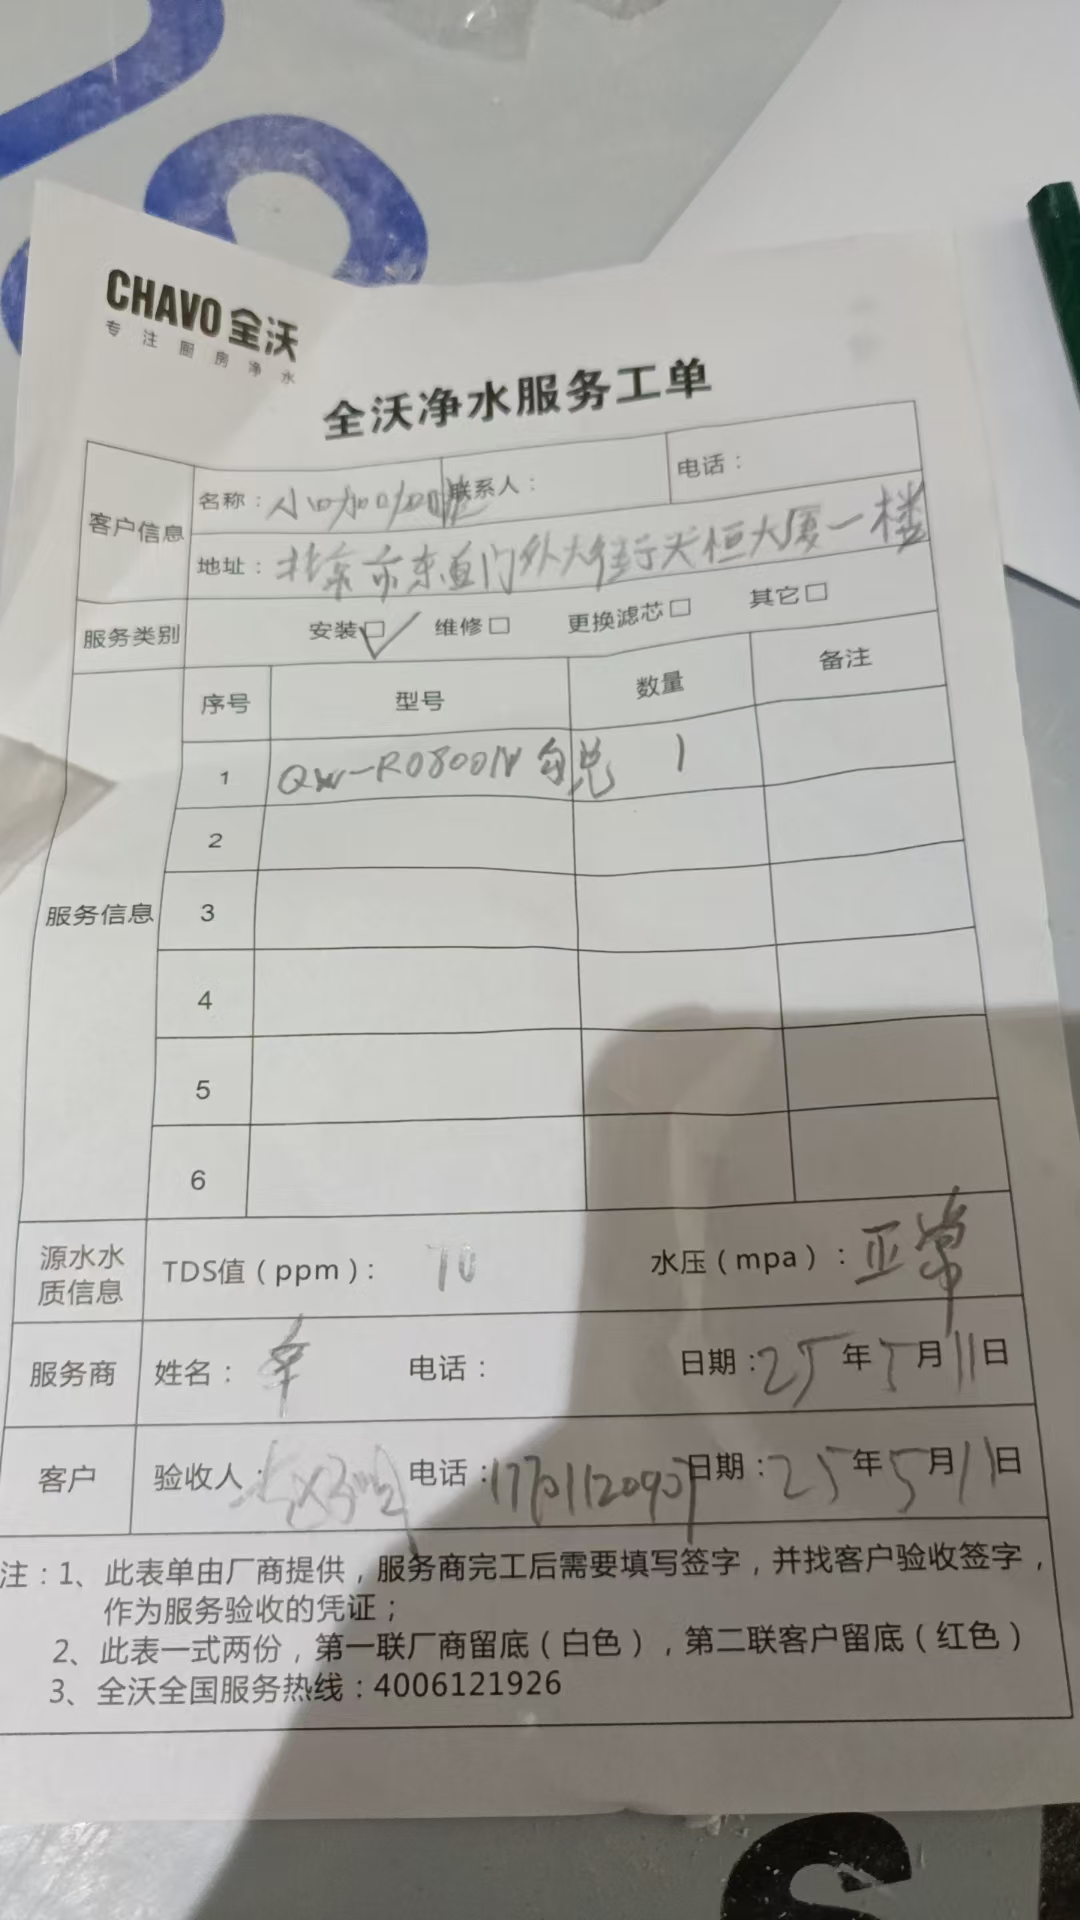 CHAVO 全沃
专注厨房净水
全沃净水服务工单
客户信息
名称：小口加口加口 联系人： 电话：
地址：北京市东直门外大街天恒大厦一楼
服务类别 安装☑ 维修□ 更换滤芯□ 其它□
服务信息
序号 型号 数量 备注
1 QW-RO800N 勾兑 1
2
3
4
5
6
源水水质信息 TDS值（ppm）： 70 水压（mpa）：正常
服务商 姓名： 电话： 日期：25年5月11日
客户 验收人： 电话：17701120907 日期：25年5月11日
注：1、此表单由厂商提供，服务商完工后需要填写签字，并找客户验收签字，
作为服务验收的凭证；
2、此表一式两份，第一联厂商留底（白色），第二联客户留底（红色）
3、全沃全国服务热线：4006121926